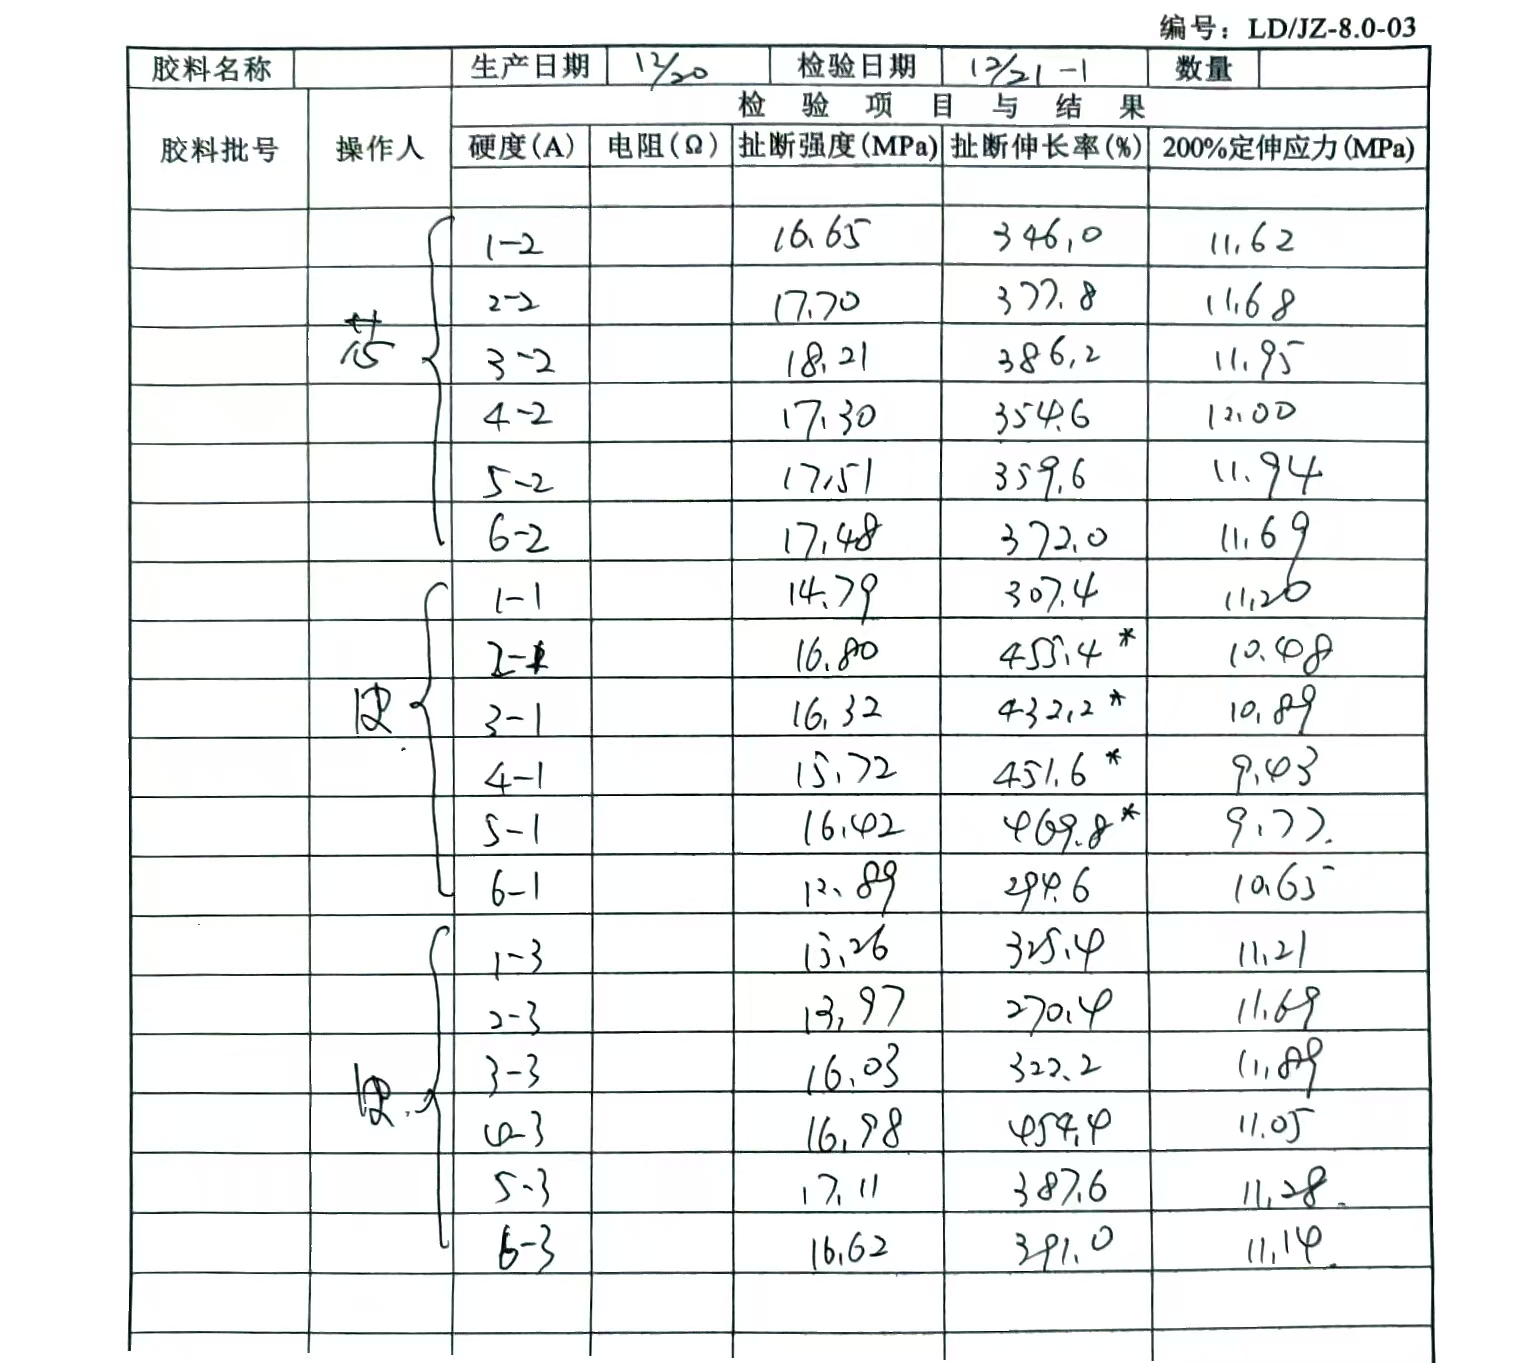 编号：LD/JZ-8.0-03
胶料名称 生产日期 12/20 检验日期 12/21-1 数量
检 验 项 目 与 结 果
胶料批号 操作人 硬度(A) 电阻(Ω) 扯断强度(MPa) 扯断伸长率(%) 200%定伸应力(MPa)
1-2 16.65 346.0 11.62
2-2 17.70 377.8 11.68
3-2 18.21 386.2 11.95
4-2 17.30 354.6 12.00
5-2 17.51 359.6 11.94
6-2 17.48 372.0 11.69
1-1 14.79 307.4 11.20
2-1 16.80 455.4* 10.48
3-1 16.32 432.2* 10.89
4-1 15.72 451.6* 9.43
5-1 16.42 469.8* 9.77.
6-1 12.89 294.6 10.65
1-3 15.26 325.4 11.21
2-3 13.97 270.4 11.69
3-3 16.03 322.2 11.89
4-3 16.98 454.4 11.05
5-3 17.11 387.6 11.28.
6-3 16.62 391.0 11.14.